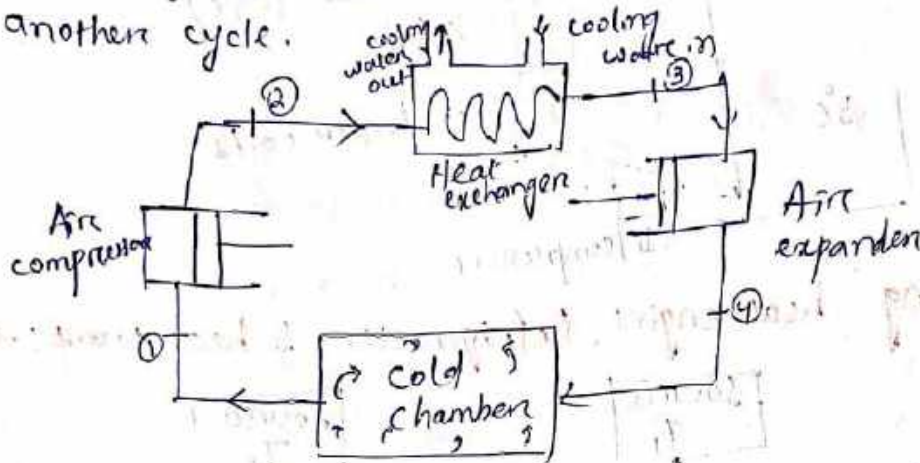 another cycle.
cooling
water
out
cooling
water in
②
③
Heat
exchanger
Air
compressor
Air
expander
①
④
Cold
Chamber